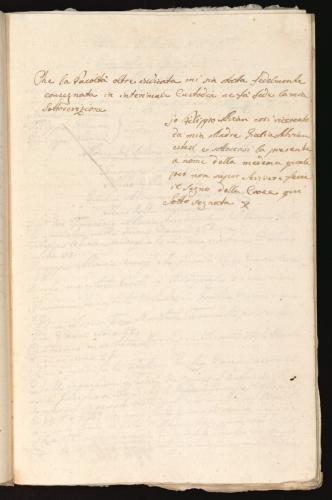 Che la facoltà oltre scritta mi sia stata fedelmente
consegnata in interinale Custodia ne fà fede la mia
Sottoscrizione
Jo Filippo Abram così ricercato
da mia Madre Abram
estesi e sottoscrissi la presente
a nome della medema quale
per non saper scrivere fece
il segno della Croce qui
sotto segnata X